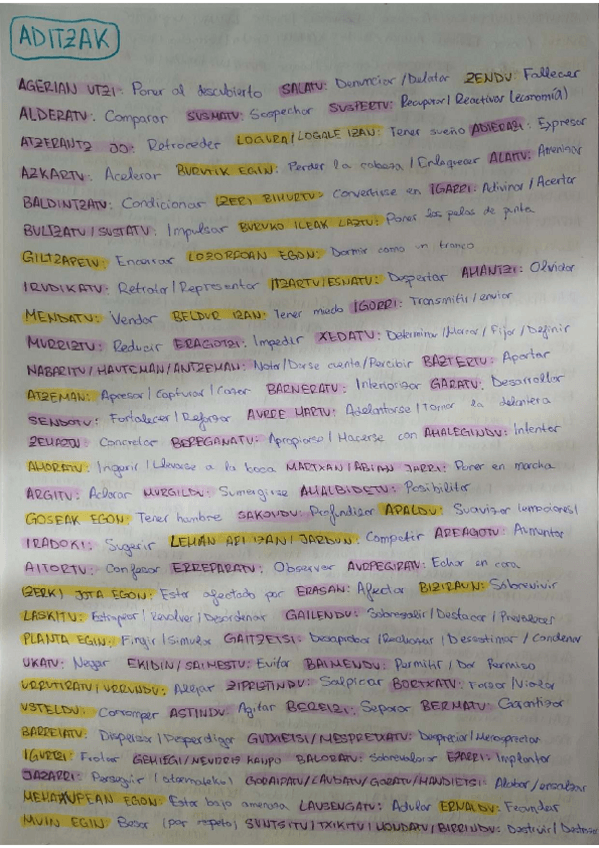 ADITZAK
AGERIAN UTZI: Poner al descubierto SALATU: Denunciar/Delatar ZENDU: Fallecer
ALDERATU: Comparar SUSMATU: Sospechar SUSPERTU: Recuperar/Reactivar (economía)
ATZERANTZ JO: Retroceder LOGURA/LOGALE IZAN: Tener sueño ADIERAZI: Expresar
AZKARTU: Acelerar BURUTIK EGIN: Perder la cabeza/Enloquecer ALATU:
BALDINTZATU: Condicionar IZERI BIHURTU: Convertirse en IGARRI: Adivinar/Acertar
BULTZATU/SUSTATU: Impulsar BURUKO ILEAK LAZTU: Poner los pelos de punta
GILTZAPETU: Encerrar LOZORROAN EGON: Dormir como un tronco
IRUDIKATU: Retratar/Representar ITZARTU/ESNATU: Despertar AHANTZI: Olvidar
MENDATU: Vendar BELDUR IZAN: Tener miedo IGORRI: Transmitir/enviar
MURRIZTU: Reducir ERAGOTZI: Impedir XEDATU: Determinar/Marcar/Fijar/Definir
NABARITU/HAUTEMAN/ANTZEMAN: Notar/Darse cuenta/Percibir BAZTERTU: Apartar
ATZEMAN: Apresar/Capturar/Cazar BARNERATU: Interiorizar GARATU: Desarrollar
SENDOTU: Fortalecer/Reforzar AURRE HARTU: Adelantarse/Tomar la delantera
ZEHAZTU: Concretar BEREGANATU: Apropiarse/Hacerse con AHALEGINDU: Intentar
AHORATU: Ingerir/Llevarse a la boca MARTXAN/ABIAN JARRI: Poner en marcha
ARGITU: Aclarar MURGILDU: Sumergirse AHALBIDETU: Posibilitar
GOSEAK EGON: Tener hambre SAKONDU: Profundizar APALDU: Suavizar (emociones)
IRADOKI: Sugerir LEHIAN ARI IZAN/JARDUN: Competir AREAGOTU: Aumentar
AITORTU: Confesar ERREPARATU: Observar AURPEGIRATU: Echar en cara
(ZERK) JOTA EGON: Estar afectado por ERASAN: Afectar BIZIRAUN: Sobrevivir
LASKITU: Estropear/Revolver/Desordenar GAILENDU: Sobresalir/Destacar/Prevalecer
PLANTA EGIN: Fingir/Simular GAITZETSI: Desaprobar/Reaccionar/Desestimar/Condenar
UKATU: Negar EKIDIN/SAIHESTU: Evitar BAIMENDU: Permitir/Dar Permiso
URRUTIRATU/URRUNDU: Alejar ZIPRIZTINDU: Salpicar BORTXATU: Forzar/Violar
USTELDU: Corromper ASTINDU: Agitar BEREIZI: Separar BERMATU: Garantizar
BARREIATU: Dispersar/Desperdigar GUTXIETSI/MESPRETXATU: Despreciar/Menospreciar
IGURTZI: Frotar GEHIEGI/NEURRIZ KANPO BALORATU: Sobrevalorar EZARRI: Implantar
JAZARRI: Perseguir GORAIPATU/LAUDATU/GORATU/HANDIETSI: Alabar/ensalzar
MEHATXUPEAN EGON: Estar bajo amenaza LAUSENGATU: Adular ERNALDU: Fecundar
MUIN EGIN: Besar (por respeto) SUNTSITU/TXIKITU/HONDATU/BIRRINDU: Destruir/Destrozar